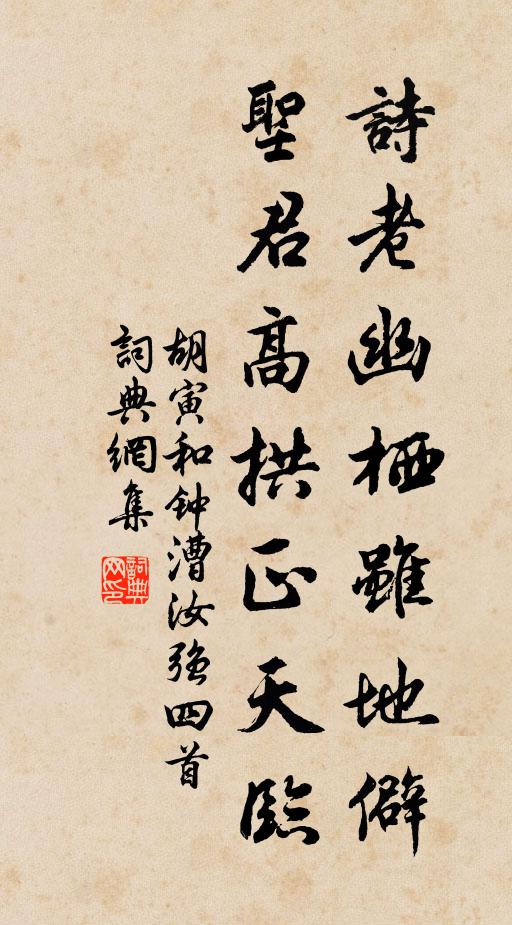 詩老幽栖雖地僻
聖君高拱正天臨
胡寅和钟漕汝强四首
詞典網集
詞典网印